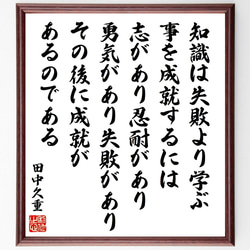 知識は失敗より学ぶ
事を成就するには
志があり忍耐があり
勇気があり失敗があり
その後に成就が
あるのである
田中久重